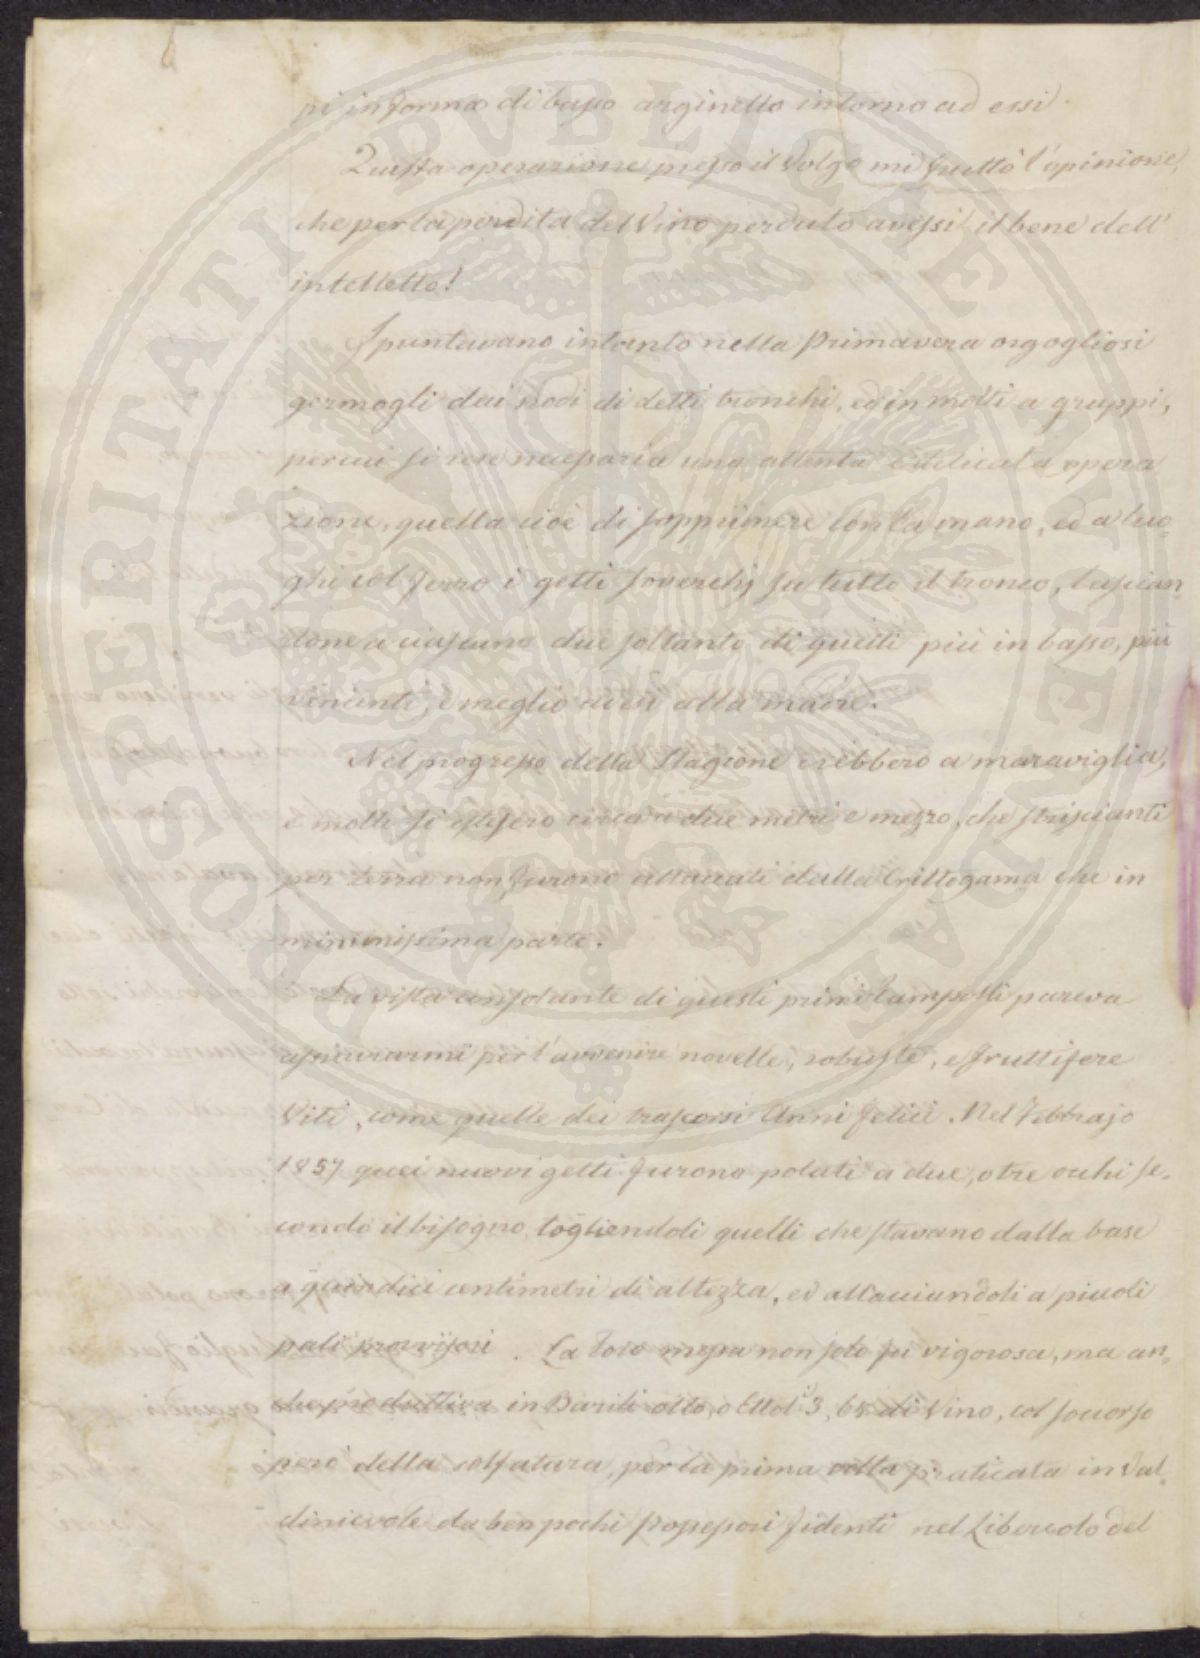 pi in forma di basso arginello intorno ad essi.
Questa operazione presso il Volgo mi fruttò l'opinione,
che per la perdita del Vino perduto avessi il bene dell'
intelletto!
Spuntavano intanto nella Primavera orgogliosi
germogli dai nodi di detti tronchi, ed in molti a gruppi,
per cui si rese necessaria una attenta e delicata opera
zione, quella cioè di sopprimere con la mano, ed a luo-
ghi col ferro i getti soverchj su tutto il tronco, lascian-
done a ciascuno due soltanto di quelli più in basso, più
vincenti, e meglio diesi alla madre.
Nel progresso della Stagione crebbero a maraviglia,
e molti si estesero circa a due metri e mezzo, che striscianti
per terra non furono attaccati dalla Crittogama che in
minimissima parte.
La vista consolante di questi primi lampolli pareva
assicurarmi per l'avvenire novelle, robuste, e fruttifere
Viti, come quelle dei trascorsi Anni felici. Nel Febbrajo
1857 quei nuovi getti furono potati a due, o tre occhi se-
condo il bisogno, togliendoli quelli che stavano dalla base
a quindici centimetri di altezza, ed allacciandoli a piccoli
pali provvisori. La loro messa non solo fu vigorosa, ma an-
che produttiva in Barili otto, o Ettol.i 3, 65 di Vino, col soccorso
però della solfatura, per la prima volta praticata in Val-
dinievole da ben pochi Possessori fidenti nel Libercolo del
PROSPERITATI PVBLICAE AVGENDAE